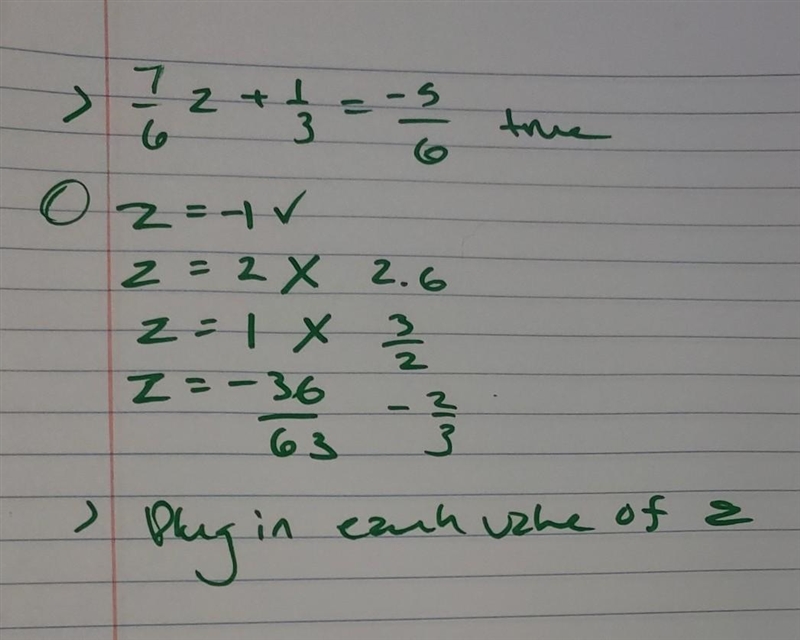 > 7/6 z + 1/3 = -5/6 true
z = -1 ✓
z = 2 X 2.6
z = 1 X 3/2
z = -36/63 -2/3
> Plug in each value of z